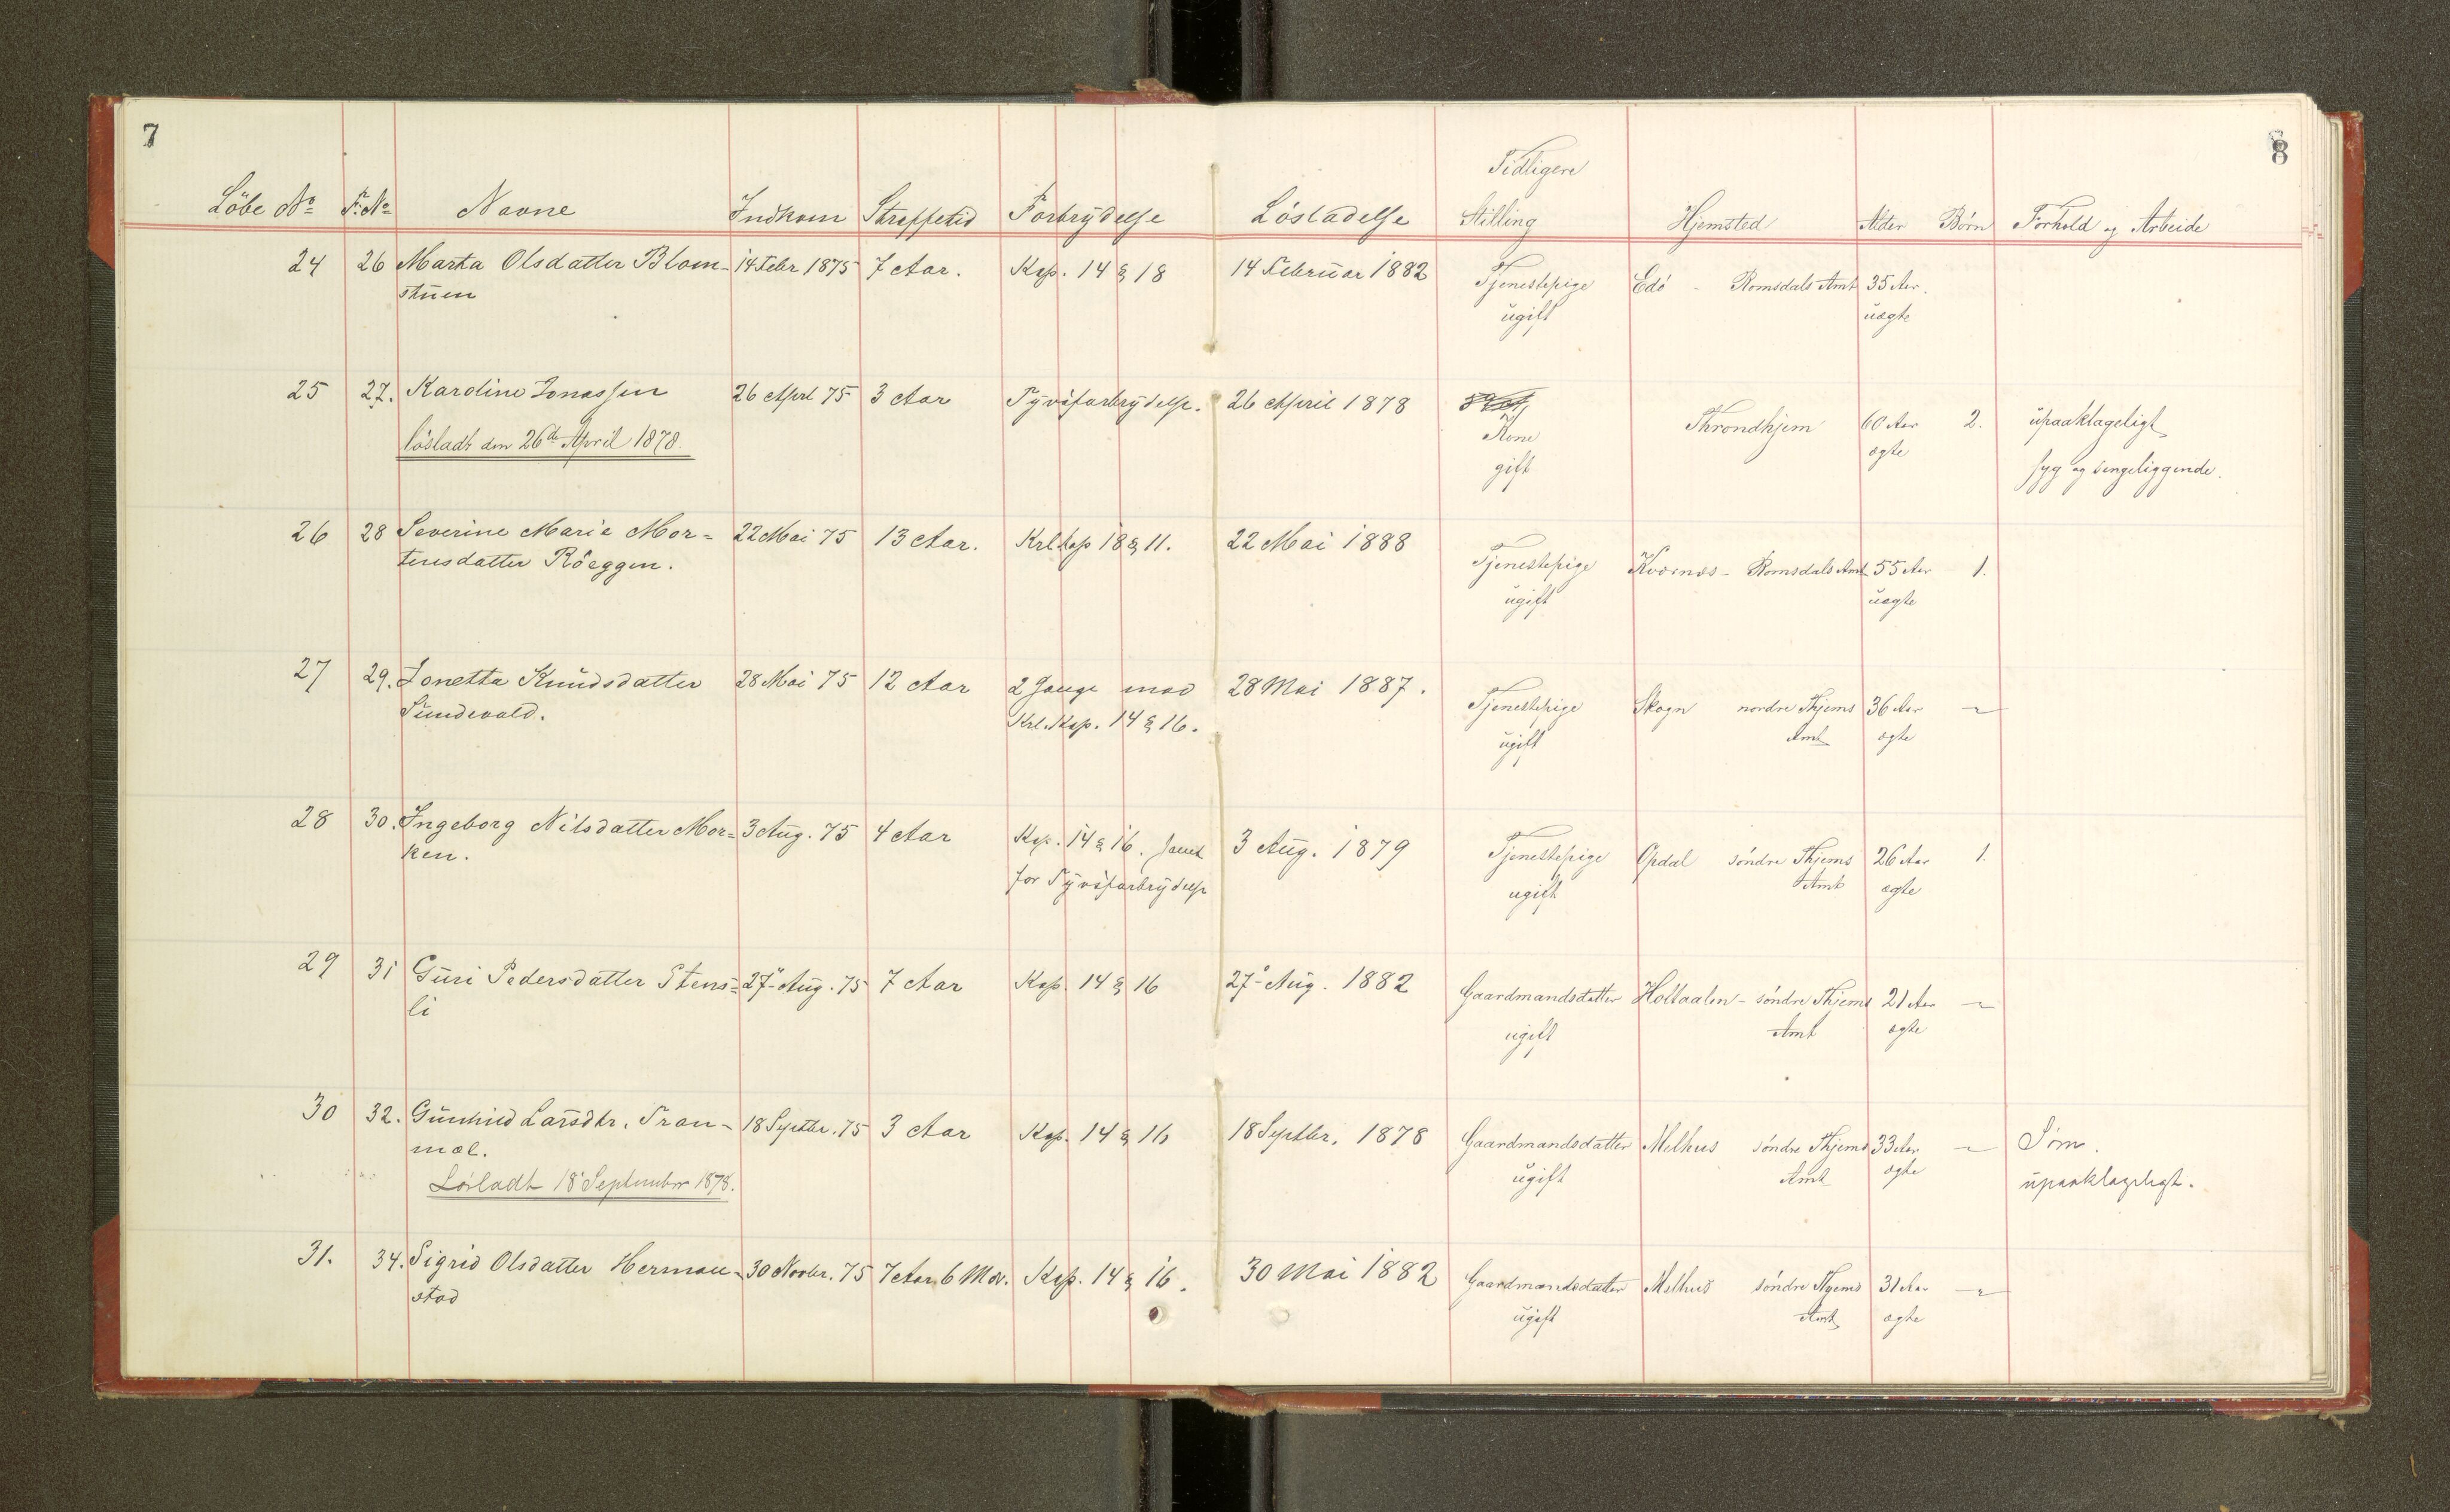 7
8
Tidligere
Löbe No F. No Navne Indkom Straffetid Forbrydelse Lösladelse Stilling Hjemsted Alder Börn Forhold og Arbeide
24 26 Marta Olsdatter Blom- 14 Febr 1875 7 Aar. Kap. 14 § 18 14 Februar 1882 Tjenestepige Edö - Romsdals Amt 35 Aar.
stuen ugift uægte
25 27. Karoline Jonassen 26 April 75 3 Aar Tyvsforbrydelse. 26 April 1878 Kone Throndhjem 60 Aar 2. upaaklageligt
lösladt den 26de April 1878. gift ægte syg og sengeliggende.
26 28 Severine Marie Mor= 22 Mai 75 13 Aar. Krl kap 18 § 11. 22 Mai 1888 Tjenestepige Kværnæs - Romsdals Amt 55 Aar 1.
tensdatter Röeggen. ugift uægte
27 29. Jonetta Knudsdatter 28 Mai 75 12 Aar 2 Gange mod 28 Mai 1887. Tjenestepige Skogn nordre Thjems 36 Aar -
Sundvald. Krl. Kap. 14 § 16. ugift Amt ægte
28 30. Ingeborg Nilsdatter Mor= 3 Aug. 75 4 Aar Kap. 14 § 16. samt 3 Aug. 1879 Tjenestepige Opdal söndre Thjems 26 Aar 1.
ken. for Tyvsforbrydelse ugift Amt ægte
29 31 Guri Pedersdatter Stens= 27 Aug. 75 7 Aar Kap. 14 § 16 27 Aug. 1882 Gaardmandsdatter Holtaalen - söndre Thjems 21 Aar -
li ugift Amt ægte
30 32. Gunhild Larsdtr. Tran- 18 Septbr. 75 3 Aar Kap. 14 § 16 18 Septbr. 1878 Gaardmandsdatter Melhus söndre Thjems 33 Aar - Söm.
mæl. ugift Amt ægte upaaklageligt.
Lösladt 18 September 1878.
31. 34. Sigrid Olsdatter Herman- 30 Novbr. 75 7 Aar 6 Mdr. Kap. 14 § 16. 30 Mai 1882 Gaardmandsdatter Melhus söndre Thjems 31 Aar -
stad ugift Amt ægte